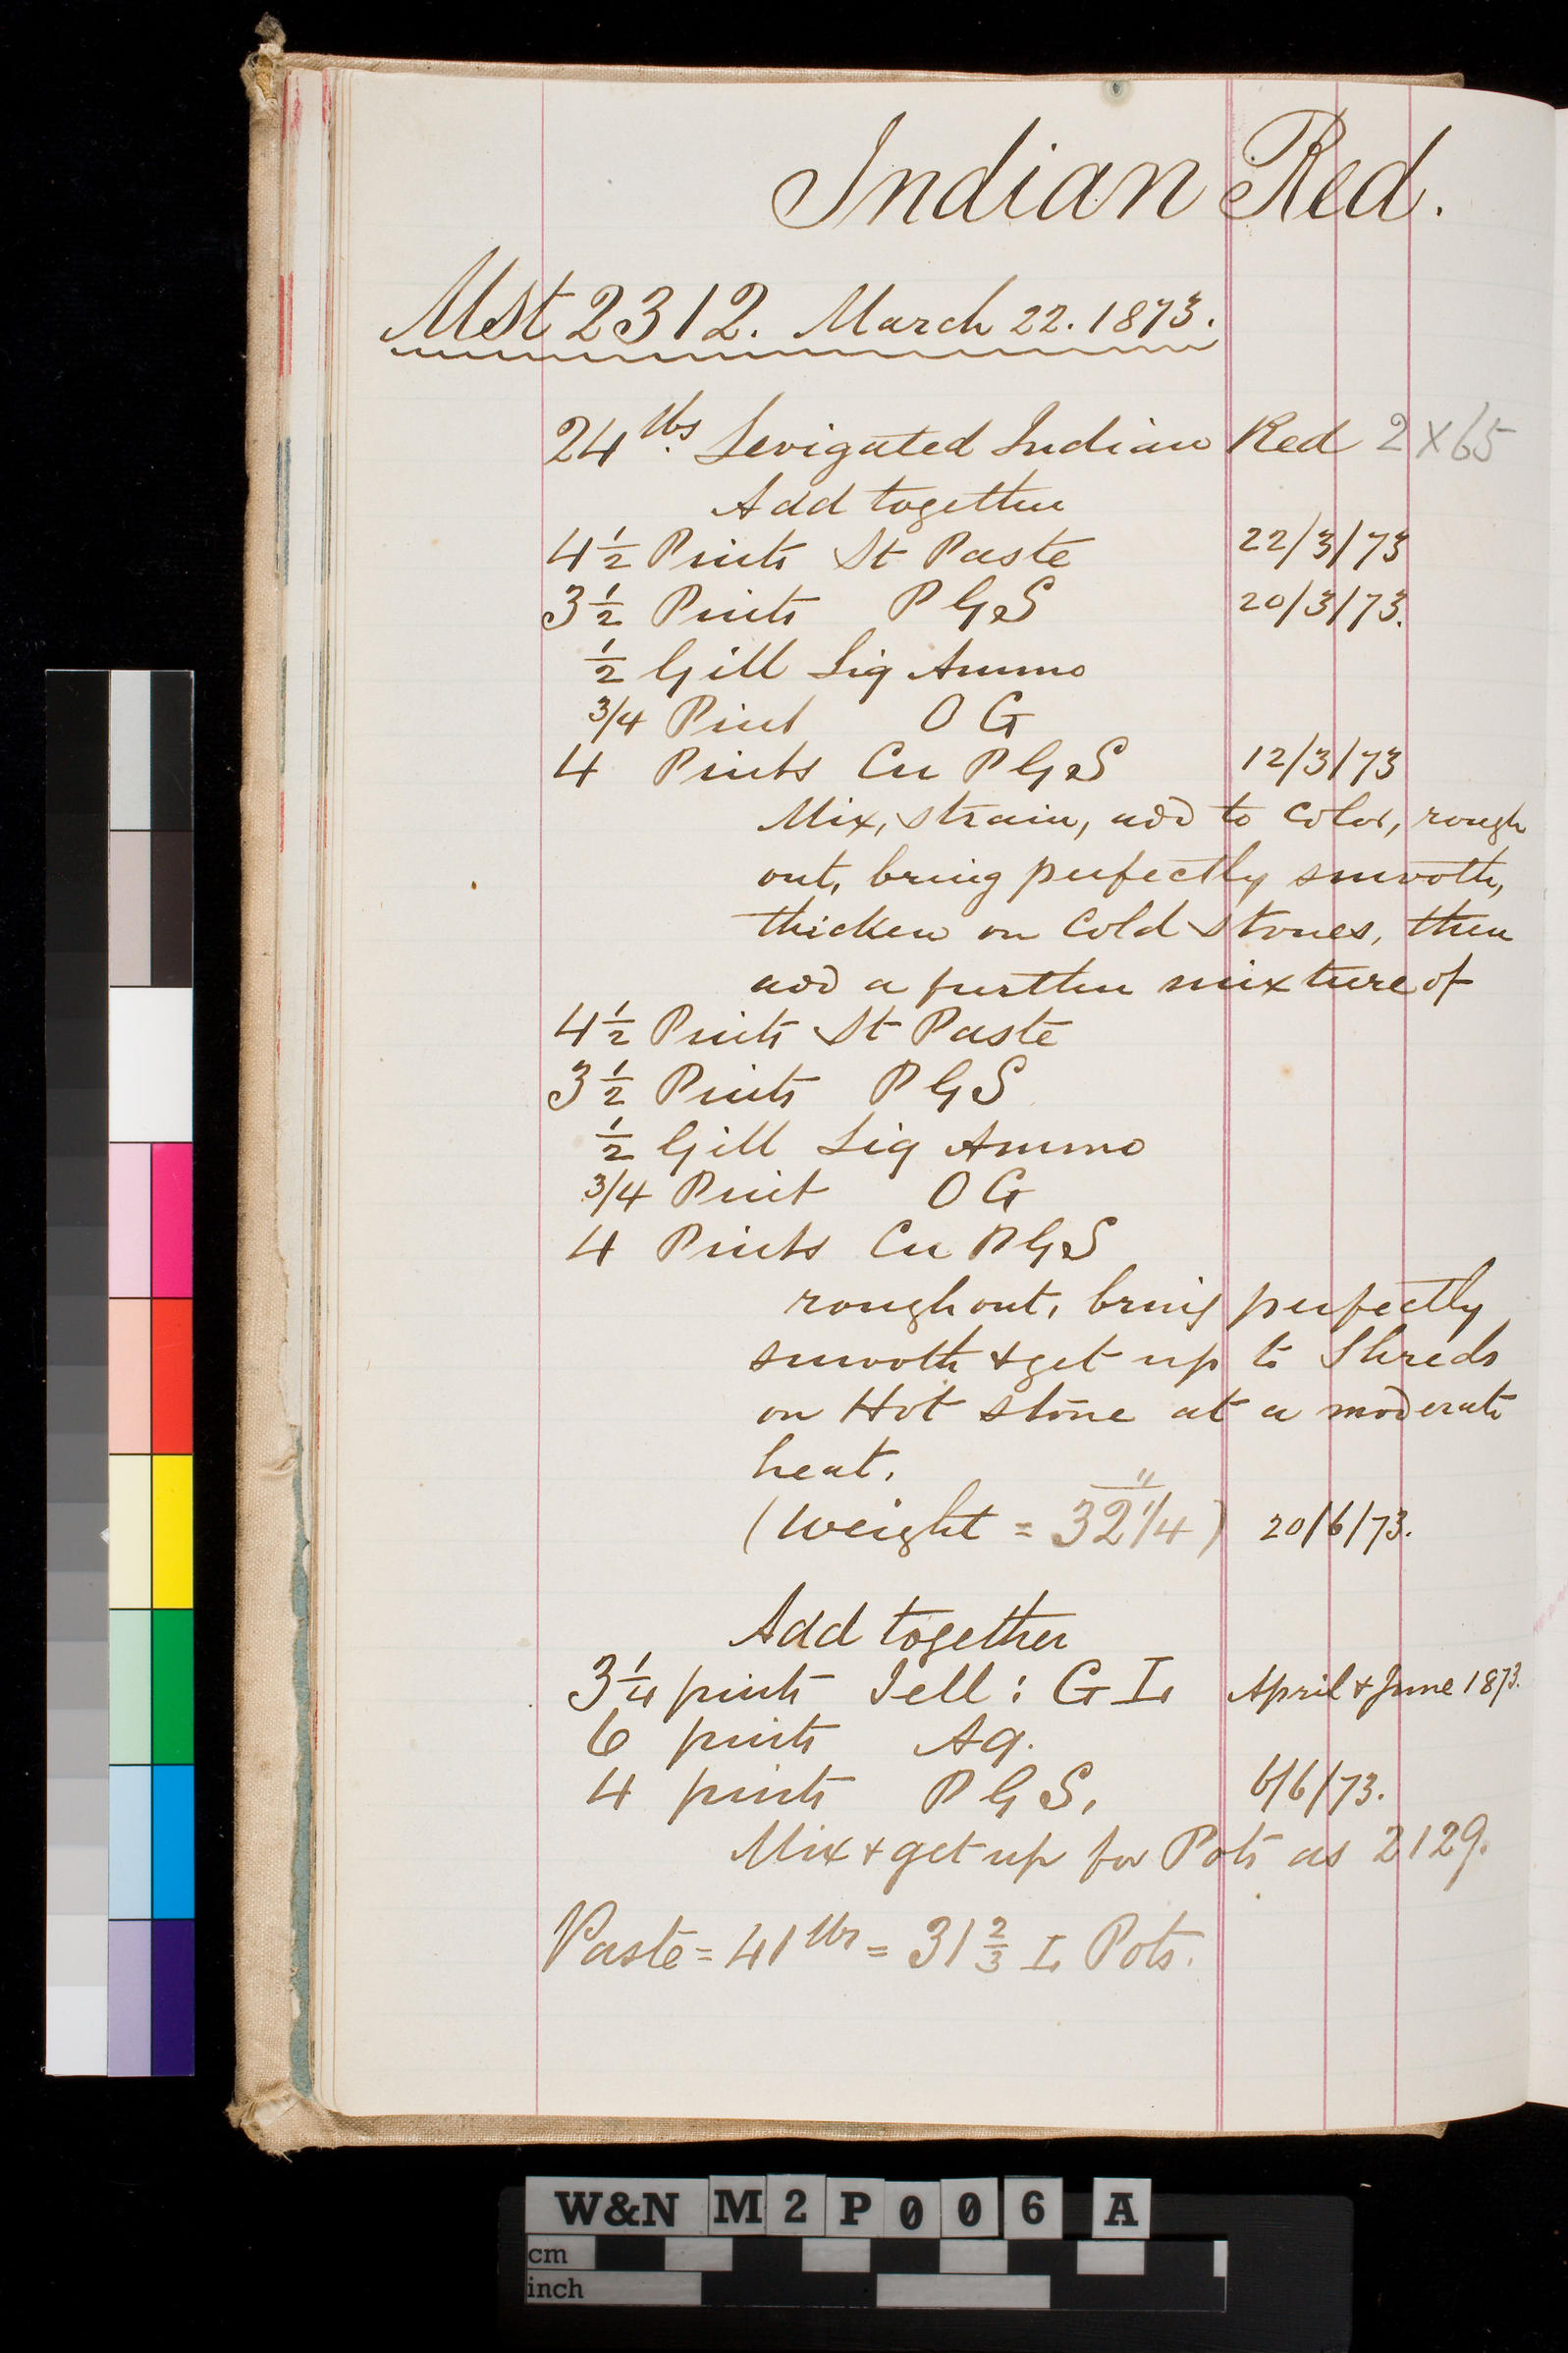 Indian Red.
Mst 2312. March 22. 1873.
24 lbs Levigated Indian Red 2X65
Add together
4 1/2 Pints St Paste 22/3/73
3 1/2 Pints P G S 20/3/73.
1/2 Gill Liq Ammo
3/4 Pint O G
4 Pints Cu P G S 12/3/73
Mix, strain, add to Color, rough
out, bring perfectly smooth,
thicken on Cold Stones, then
add a further mixture of
4 1/2 Pints St Paste
3 1/2 Pints P G S
1/2 Gill Liq Ammo
3/4 Pint O G
4 Pints Cu P G S
rough out, bring perfectly
smooth & get up to Shreds
on Hot stone at a moderate
heat.
(Weight = 32 1/4) 20/6/73.
Add together
3 1/4 pints Jell: G L April & June 1873.
6 pints Aq.
4 pints P G S. 6/6/73.
Mix & get up for Pots as 2129.
Paste = 41 lbs = 31 2/3 L Pots.
W&N M2P006 A
cm
inch